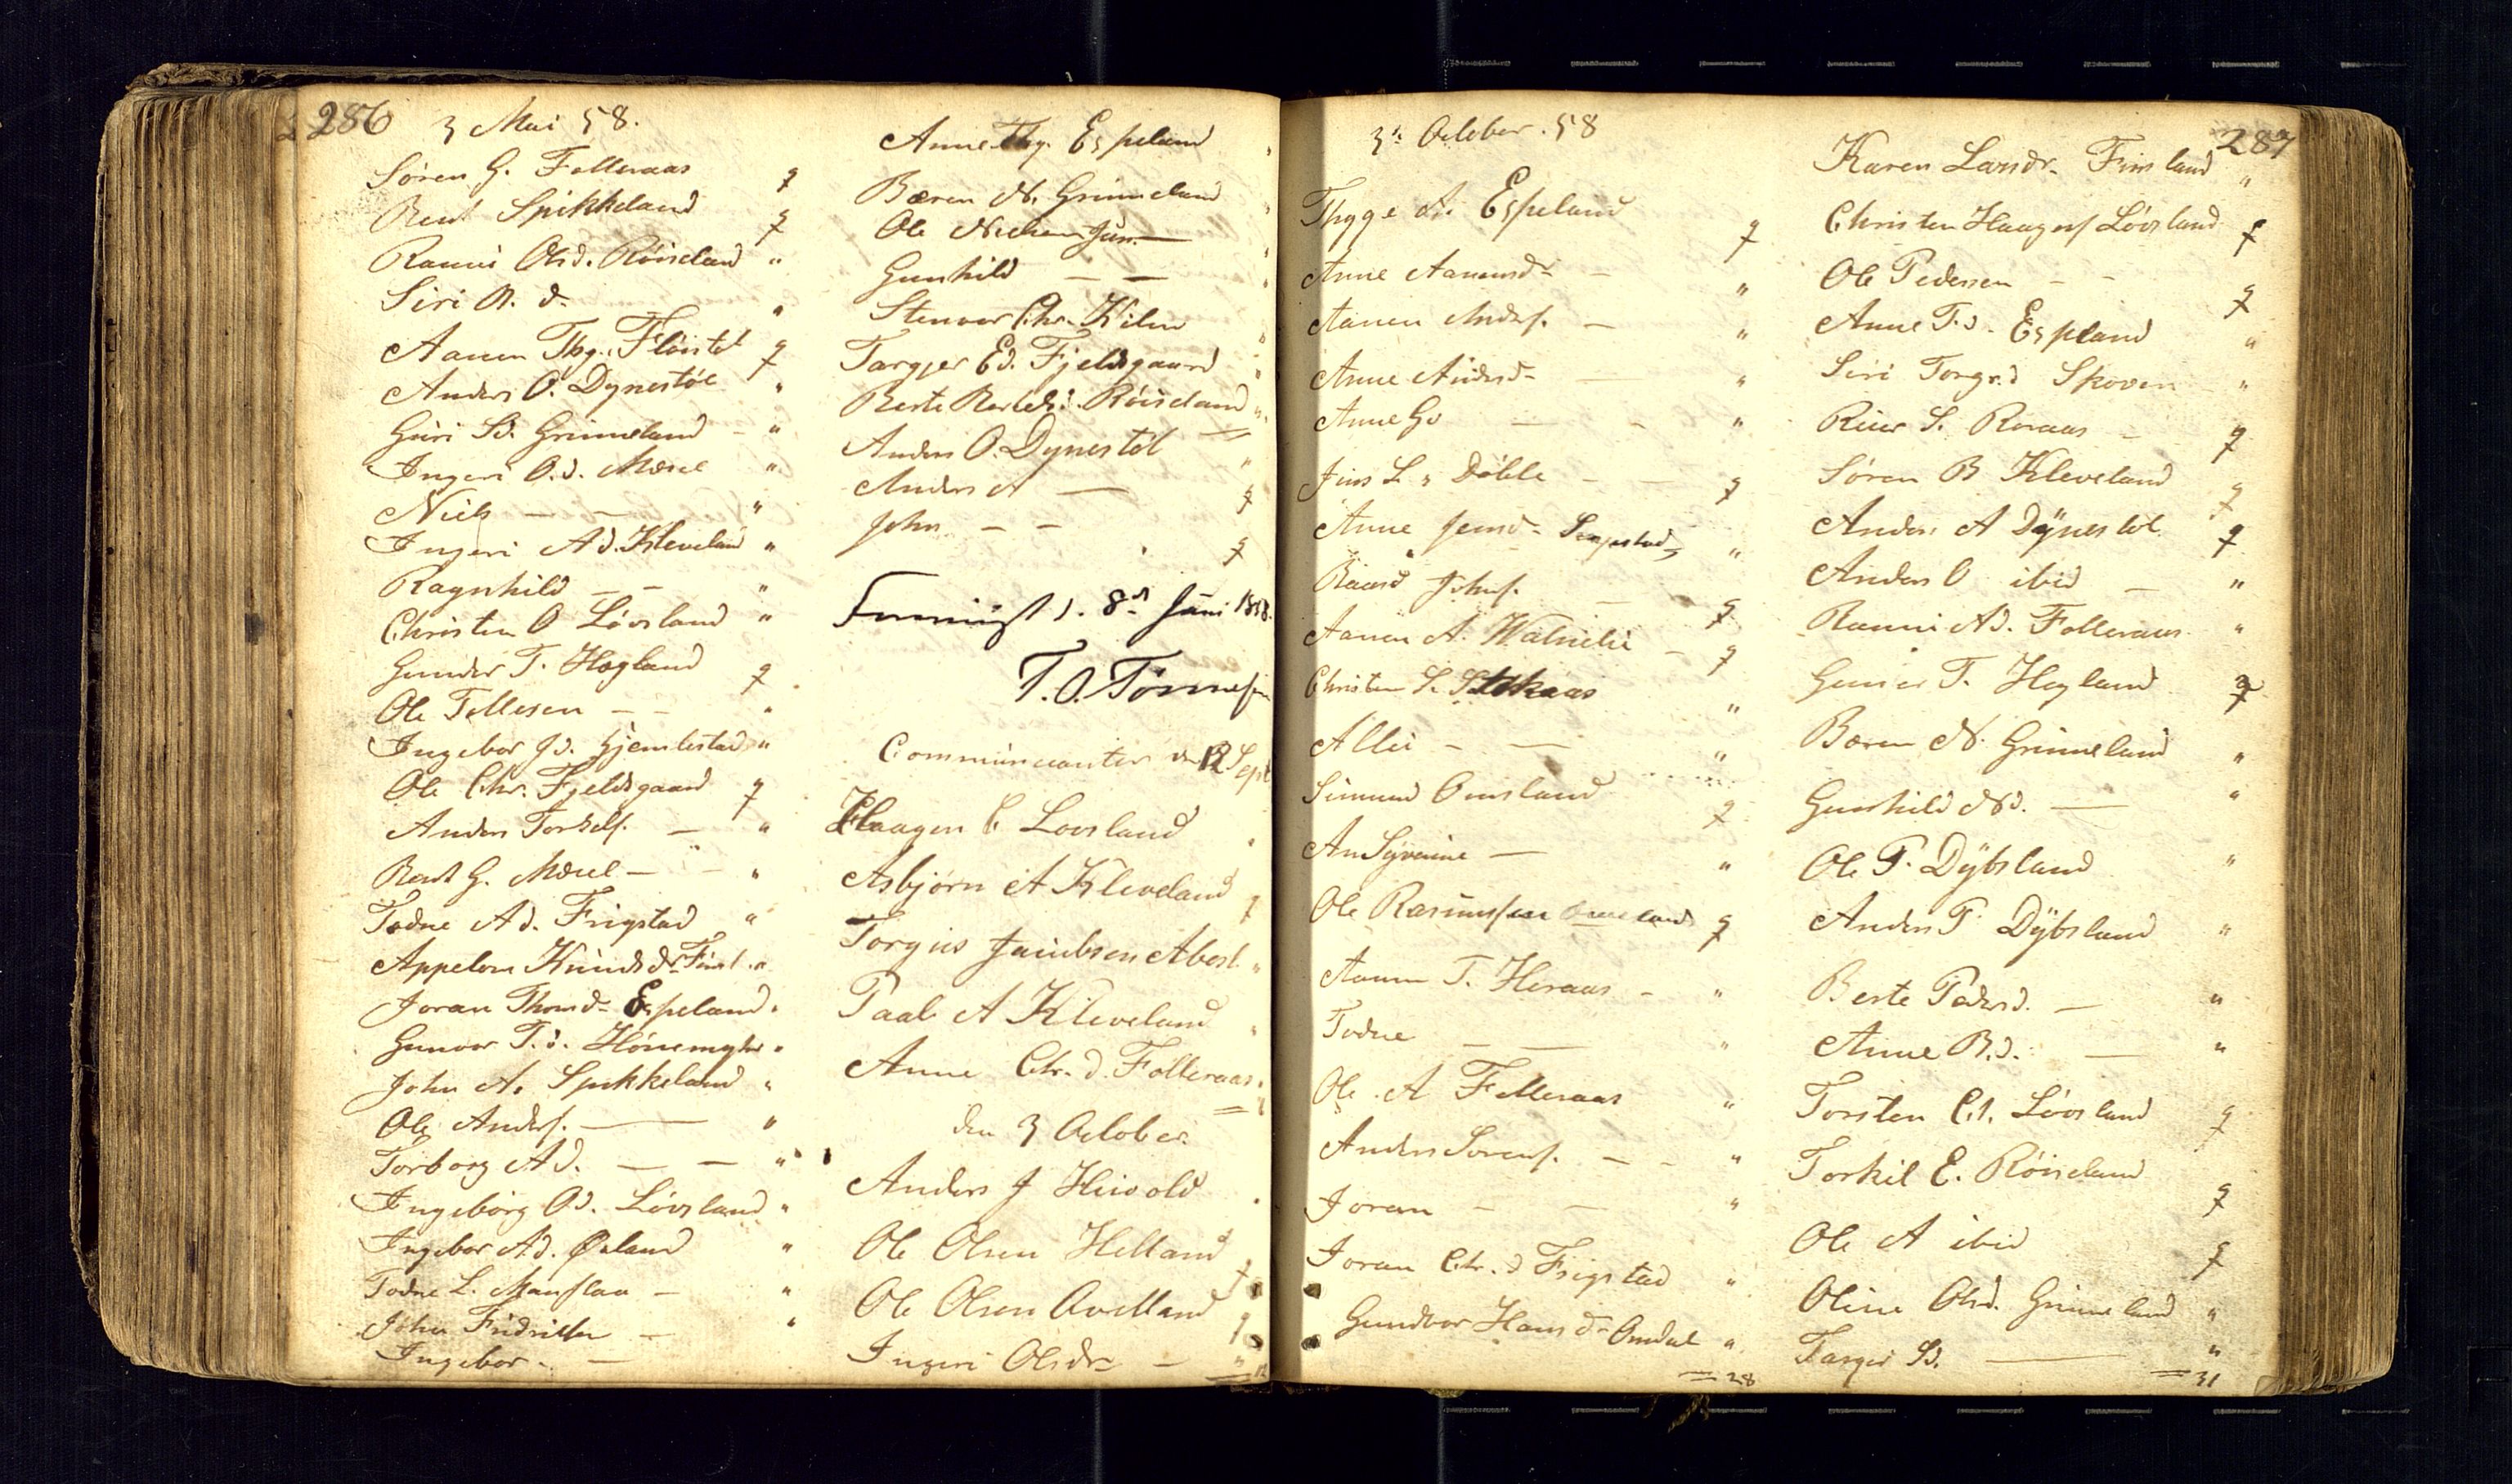 286
3 Mai 58.
Søren G. Folleraas q
Berul Spikkeland q
Rauni Olsd. Röiseland "
Siri A. d. "
Aanen Thg. Flöistöl q
Anders O. Dynestöl "
Guri Sd. Grimeland - "
Ingeri O.d. Mæsel "
Niels — — "
Ingeri Ad. Kleveland "
Ragnhild — — "
Christen O Lövsland "
Gunder T. Hægland q
Ole Tellesen — — "
Ingebor Jd. Hjemlestad "
Ole Chr. Fjeldsgaard q
Anders Torkels. — "
Berul G. Mæsel — - "
Todne Ad. Frigstad "
Appelone Knudsdr Finsl. "
Joran Thomd- Espeland "
Gunvor T.d. Hönemyhr "
John A. Spikkeland "
Ole Anders. — — "
Torborg Ad. — — "
Ingeborg Od. Lövsland "
Ingebor Ad. Öiland "
Todne L. Manflaa — "
John Fridriksen — "
Ingebor — "
Anne Thg. Espeland "
Bæren N. Grimeland "
Ole Nielsen Jun. — "
Gunhild — — "
Stenvor Chr. Kilen "
Targjer Ed. Fjeldsgaard "
Berte Bertels.d. Röiseland "
Anders O. Dynestöl "
Anders A — q
John — — q
d. 8d Juni 1858.
T. O. Tönnesen
Communicanter den 12 Sept
Haagen C Lovsland "
Asbjörn A Kleveland q
Torgius Jacobsen Abest. "
Paal A Kleveland "
Anne Chr. d. Folleraas "
den 3 October.
Anders J Hivold "
Ole Olsen Helland q
Ole Olsen Avelland q
Ingeri Olsdr — "
12
3d October. 58
287
Thygge A. Espeland q
Anne Aanensdr — "
Aanen Anders. — "
Anne Andersd- — "
Anne Gd — - "
Jens L. s Döble - — q
Anne Jensd- "
Baard Johns. — q
Aanen A. — q
Christen S. Stokaas "
Allei - — "
Simund Omsland q
An Syverine — "
Ole Rasmussen Omsland q
Aanen T. Heraas - "
Todne — — "
Ole A Folleraas "
Anders Sorens. — - "
Joran - — "
Joran Chr. d Frigstad "
Gundvor Hansd- Omdal "
= 28
Karen Larsdr- Finsland "
Christen Haagens Lövsland q
Ole Pedersen — - q
Anne T.d- Espland "
Siri Torgr.d Skoven — "
Reier S. Roraas — q
Søren B Kleveland q
Anders A Dynestöl q
Anders O ibid — "
Rauni Ad. Folleraas "
Gunder T. Hægland q
Bæren N. Grimeland "
Gunhild Nd. — "
Ole P. Dybsland "
Anders P. Dybsland "
Berte Pedersd. — "
Anne B.d. — "
Torsten Ch. Lövsland q
Torkil E. Röiseland q
Ole A ibid q
Oline Olsd. Grimeland "
Targer Sd. — "
= 31